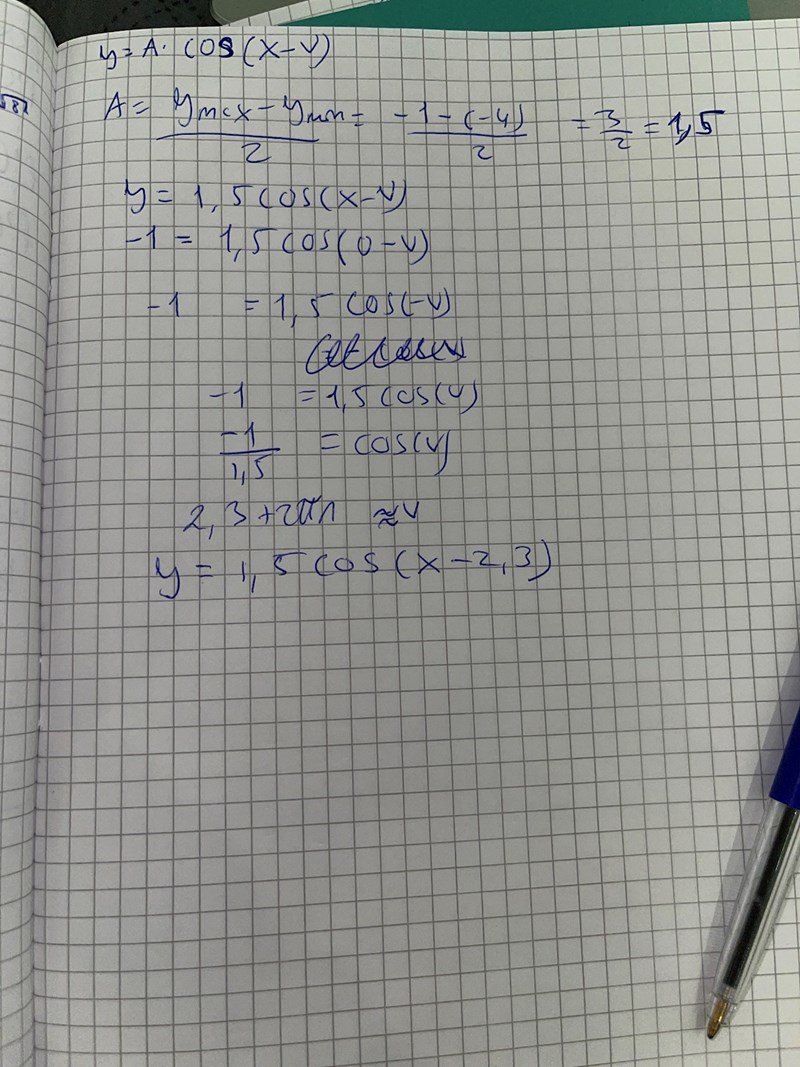 y = A · cos(x-v)
A = ymax - ymin / 2 = -1-(-4) / 2 = 3/2 = 1,5
y = 1,5 cos(x-v)
-1 = 1,5 cos(0-v)
-1 = 1,5 cos(-v)
-1 = 1,5 cos(v)
-1/1,5 = cos(v)
2,3 + 2πn ≈ v
y = 1,5 cos(x-2,3)